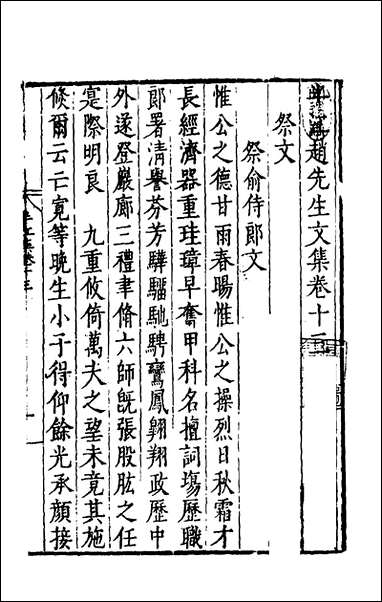 趙先生文集卷十
祭文
祭俞侍郎文
惟公之德甘雨春暘惟公之操烈日秋霜才
長經濟器重珪璋早奮甲科名擅詞塲歷職
郎署清譽芬芳驊騮馳騁鸞鳳翺翔政歷中
外遂登巖廊三禮聿脩六師旣張股肱之任
寔際明良 九重攸倚萬夫之望未竟其施
倐爾云亡寛等晚生小子得仰餘光承顔接